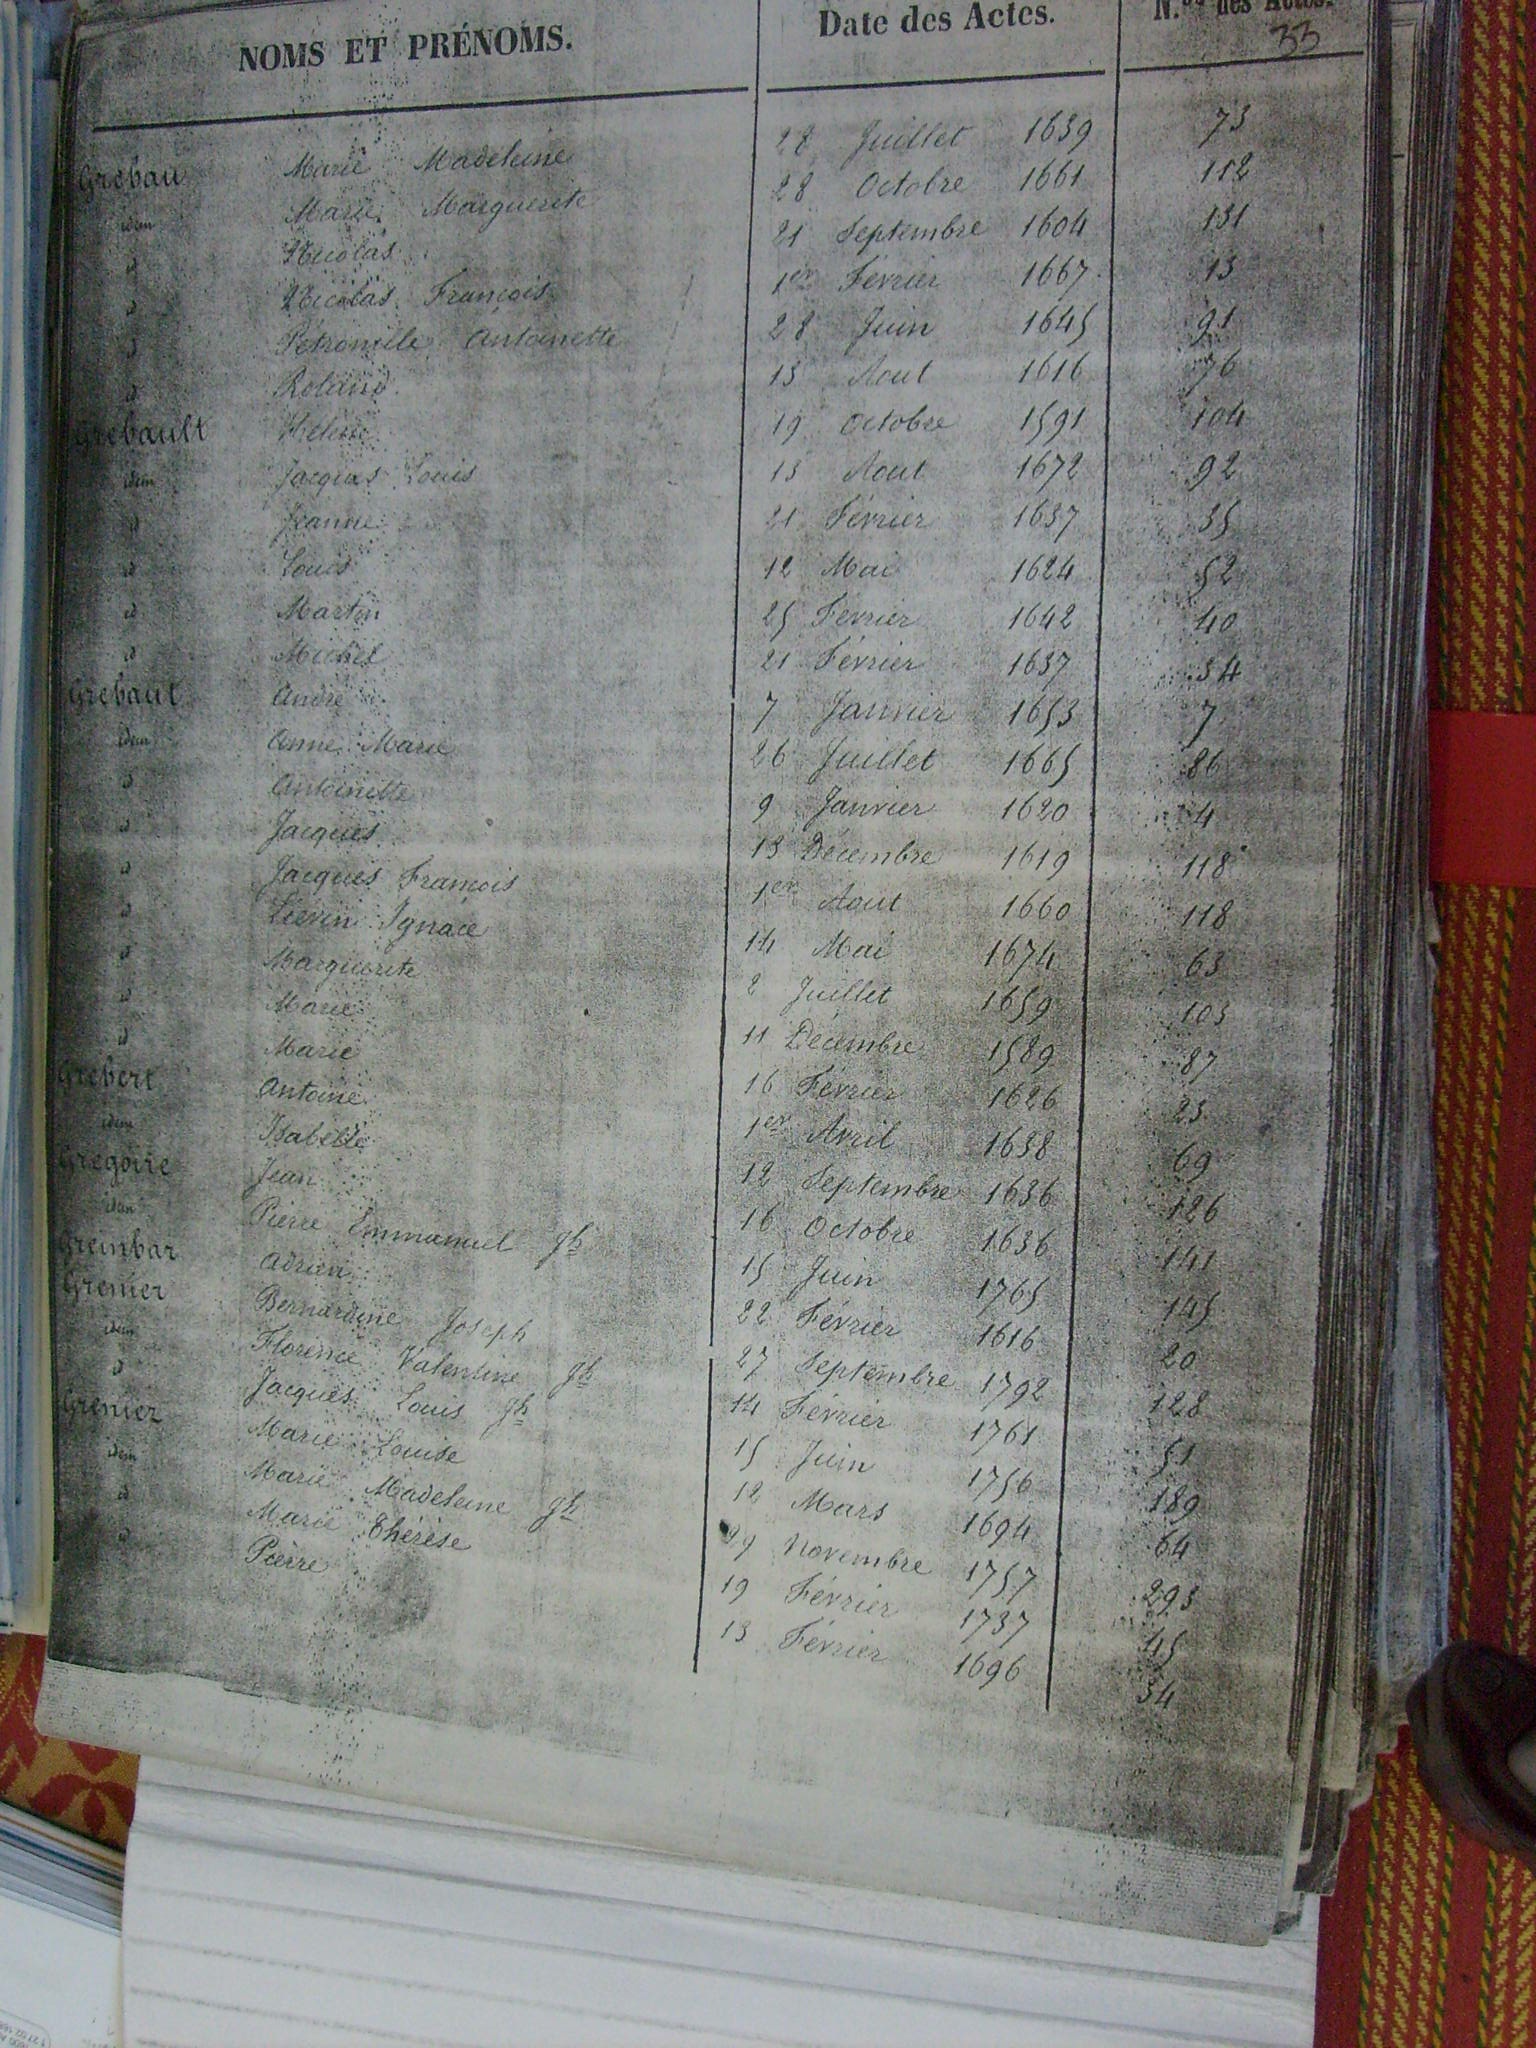 NOMS ET PRÉNOMS. Date des Actes. N.os des Actes.
33
Grebau Marie Madeleine 28 Juillet 1639 73
idem Marie Marguerite 28 Octobre 1661 112
id Nicolas 21 Septembre 1604 131
id Nicolas François 1er Février 1667 13
id Pétronille Antoinette 28 Juin 1645 91
id Roland 13 Aout 1616 76
Grebault Hélène 19 Octobre 1591 104
idem Jacques Louis 13 Aout 1672 92
id Jeanne 21 Février 1637 35
id Louis 12 Mai 1624 52
id Martin 25 Février 1642 40
id Michel 21 Février 1637 34
Grebaut André 7 Janvier 1653 7
idem Anne Marie 26 Juillet 1665 86
id Antoinette 9 Janvier 1620 4
id Jacques 13 Décembre 1619 118
id Jacques François 1er Aout 1660 118
id Lievin Ignace 14 Mai 1674 63
id Marguerite 2 Juillet 1659 103
id Marie 11 Décembre 1589 87
id Marie 16 Février 1626 23
Grebert Antoine 1er Avril 1638 69
idem Isabelle 12 Septembre 1636 126
Gregoire Jean 16 Octobre 1636 141
idem Pierre Emmanuel Jh 15 Juin 1765 145
Greinbar Adrien 22 Février 1616 20
Grenier Bernardine Joseph 27 Septembre 1792 128
idem Florence Valentine Jh 14 Février 1761 51
id Jacques Louis Jh 15 Juin 1756 189
Grenier Marie Louise 12 Mars 1694 64
idem Marie Madeleine Jh 29 Novembre 1757 293
id Marie Thérèse 19 Février 1737 45
id Pierre 13 Février 1696 34